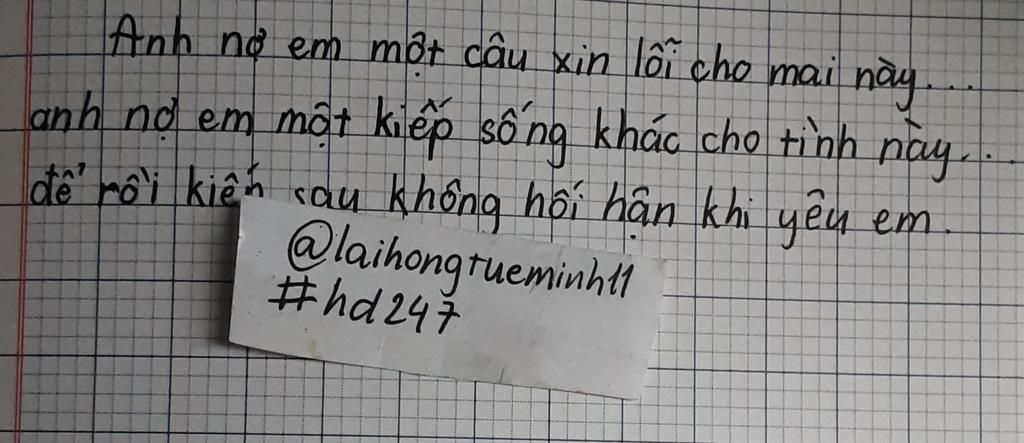 Anh nợ em một câu xin lỗi cho mai này...
anh nợ em một kiếp sống khác cho tình này...
để rồi kiến sau không hối hận khi yêu em.
@laihongtueminh11
#hd247